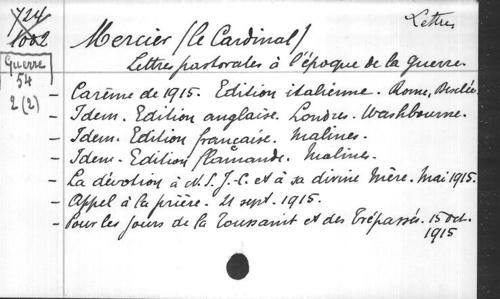 724
1002
Lettres
Mercier (le Cardinal)
Guerre
54
2 (2)
Lettres pastorales à l'époque de la guerre.
- Carême de 1915. Edition italienne. Rome,
- Idem. Edition anglaise. Londres. Washbourne.
- Idem. Edition française. Malines.
- Idem. Edition flamande. Malines.
- La dévotion à N.S.J.-C. et à sa divine Mère. Mai 1915.
- Appel à la prière. 21 sept. 1915.
- Pour les jours de la Toussaint et des Trépassés. 15 oct.
1915